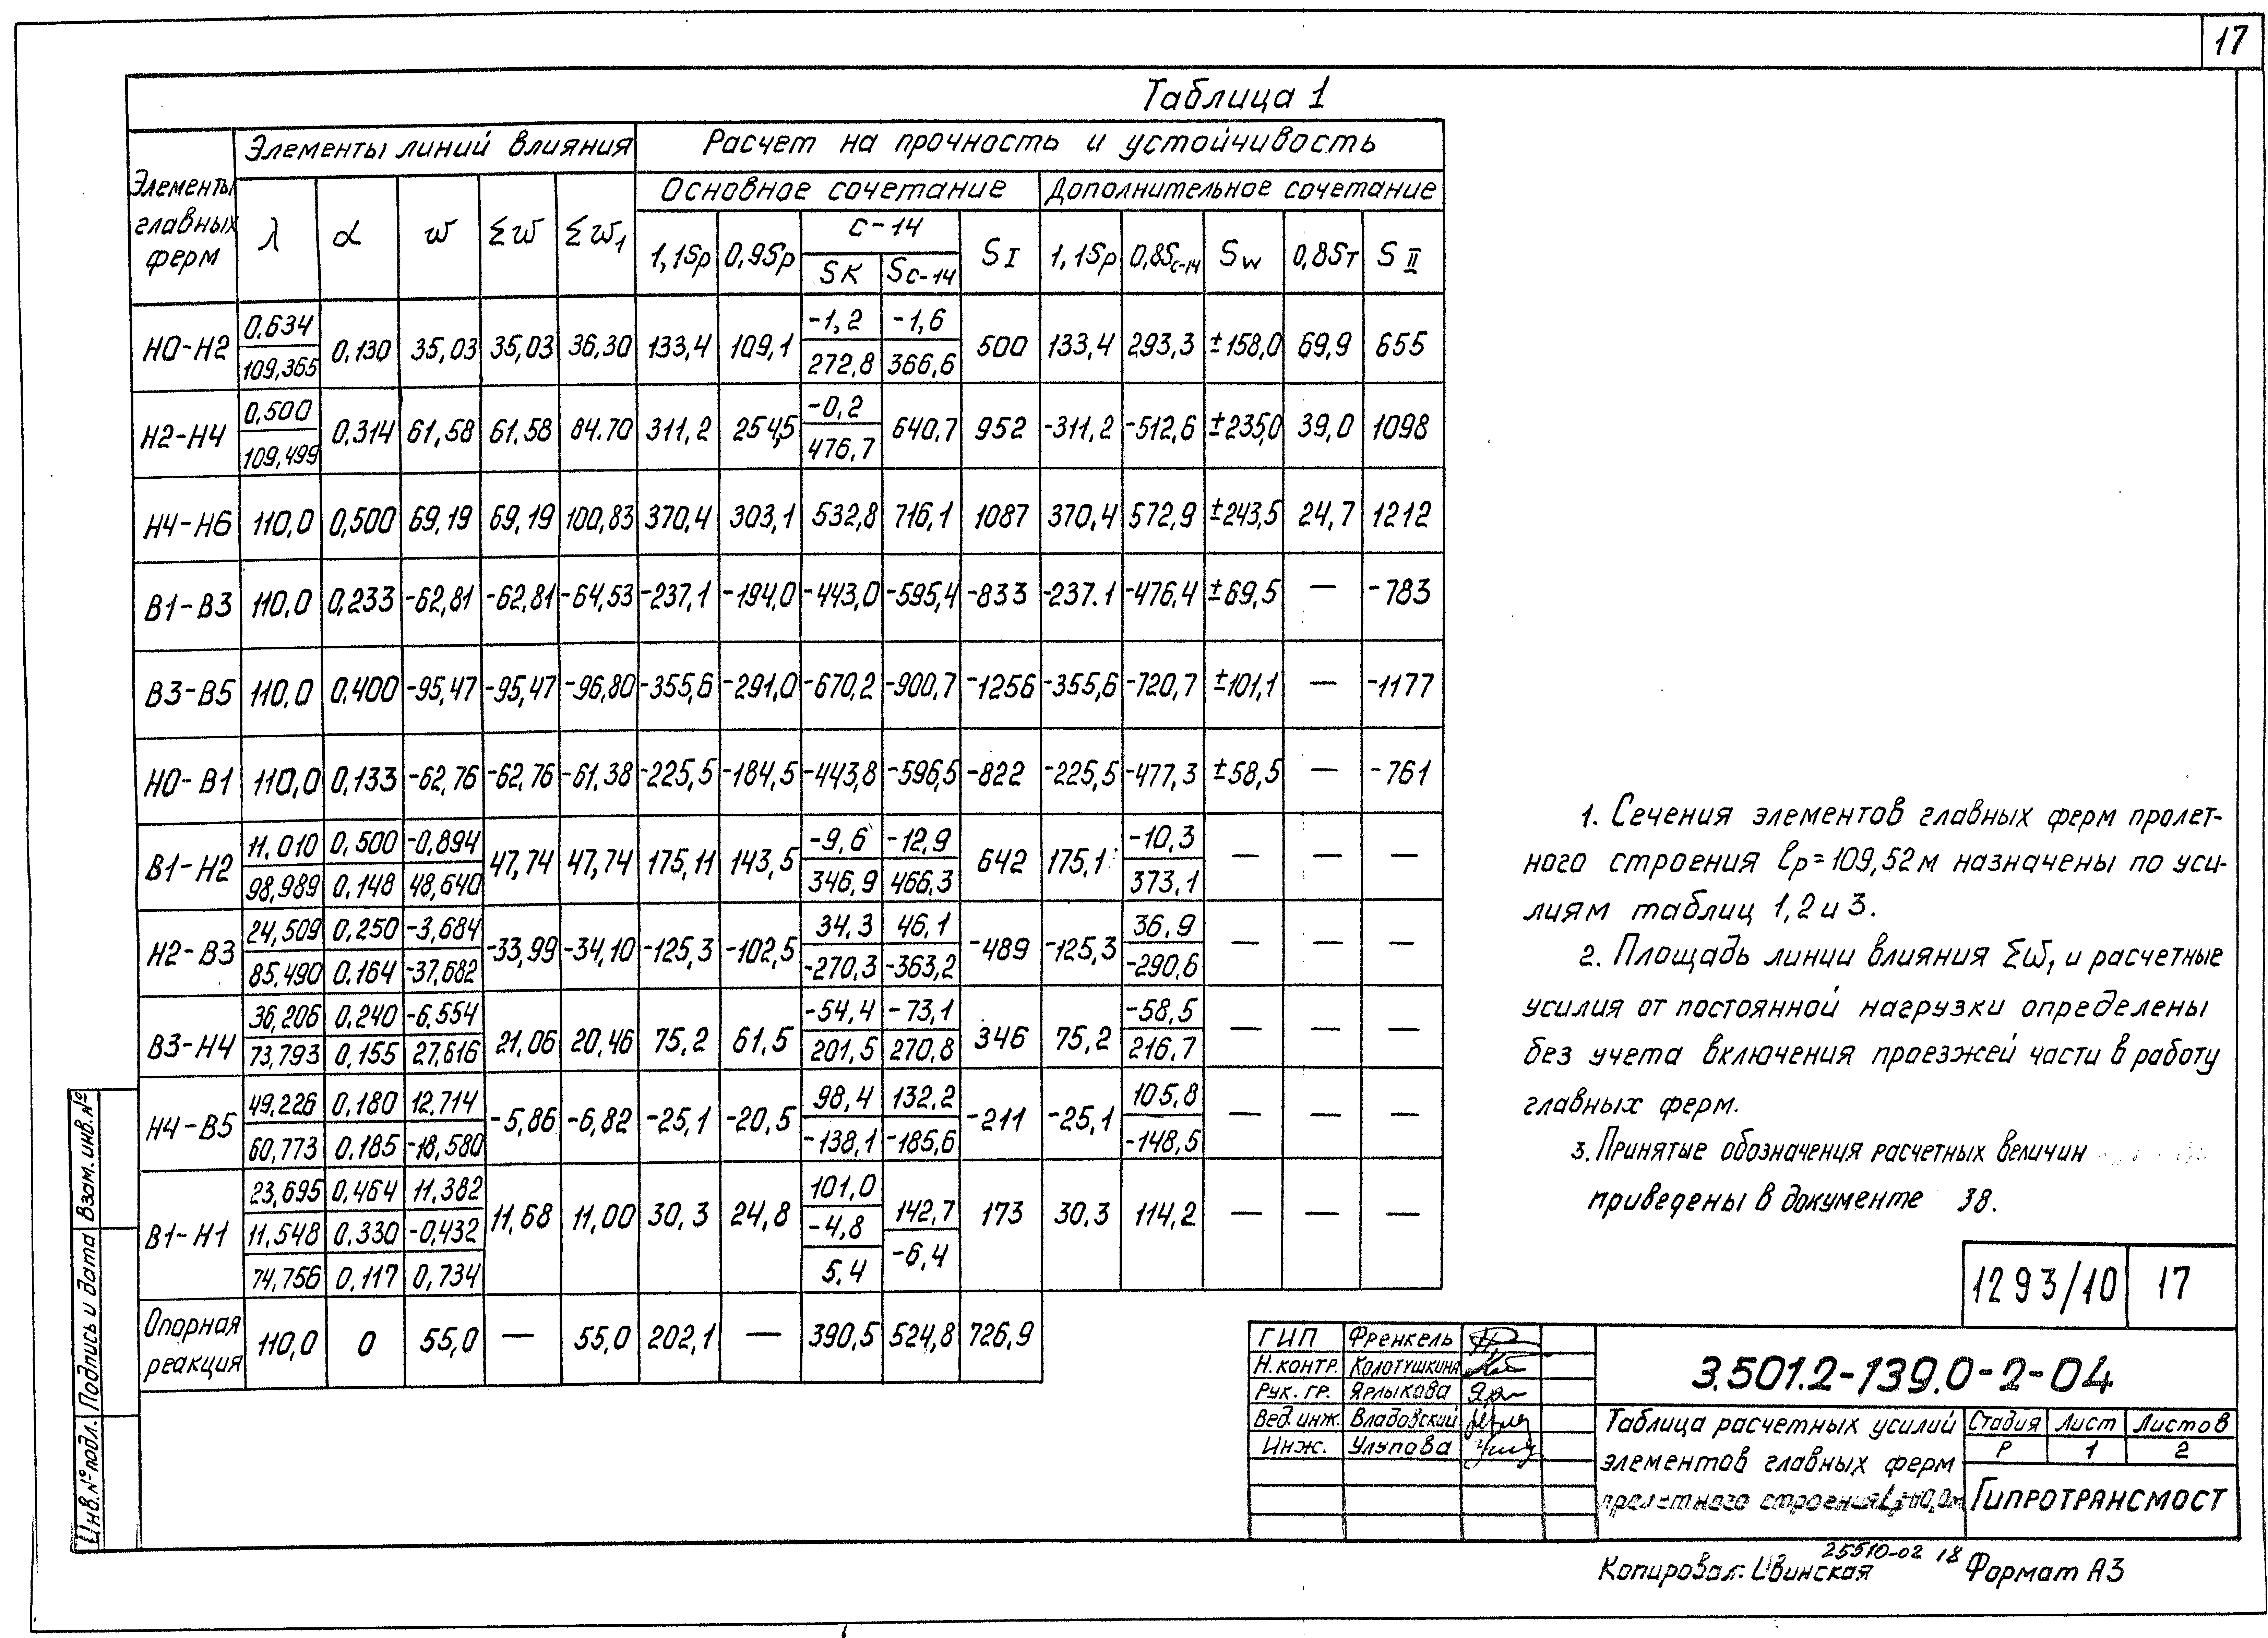 17
Таблица 1
Элементы главных ферм | Элементы линий влияния | Расчет на прочность и устойчивость
Основное сочетание | Дополнительное сочетание
λ | α | w | Σw | Σw₁ | 1,1Sp | 0,9Sp | С-14 | S I | 1,1Sp | 0,8Sс-14 | Sw | 0,8Sт | S II
Sк | Sс-14
Н0-Н2 | 0,634 / 109,365 | 0,130 | 35,03 | 35,03 | 36,30 | 133,4 | 109,1 | -1,2 / 272,8 | -1,6 / 366,6 | 500 | 133,4 | 293,3 | ±158,0 | 69,9 | 655
Н2-Н4 | 0,500 / 109,499 | 0,314 | 61,58 | 61,58 | 84.70 | 311,2 | 254,5 | -0,2 / 476,7 | 640,7 | 952 | -311,2 | -512,6 | ±235,0 | 39,0 | 1098
Н4-Н6 | 110,0 | 0,500 | 69,19 | 69,19 | 100,83 | 370,4 | 303,1 | 532,8 | 716,1 | 1087 | 370,4 | 572,9 | ±243,5 | 24,7 | 1212
В1-В3 | 110,0 | 0,233 | -62,81 | -62,81 | -64,53 | -237,1 | -194,0 | -443,0 | -595,4 | -833 | -237.1 | -476,4 | ±69,5 | — | -783
В3-В5 | 110,0 | 0,400 | -95,47 | -95,47 | -96,80 | -355,6 | -291,0 | -670,2 | -900,7 | -1256 | -355,6 | -720,7 | ±101,1 | — | -1177
Н0-В1 | 110,0 | 0,133 | -62,76 | -62,76 | -61,38 | -225,5 | -184,5 | -443,8 | -596,5 | -822 | -225,5 | -477,3 | ±58,5 | — | -761
В1-Н2 | 11,010 / 98,989 | 0,500 / 0,148 | -0,894 / 48,640 | 47,74 | 47,74 | 175,11 | 143,5 | -9,6 / 346,9 | -12,9 / 466,3 | 642 | 175,1 | -10,3 / 373,1 | — | — | —
Н2-В3 | 24,509 / 85,490 | 0,250 / 0,164 | -3,684 / -37,682 | -33,99 | -34,10 | -125,3 | -102,5 | 34,3 / -270,3 | 46,1 / -363,2 | -489 | -125,3 | 36,9 / -290,6 | — | — | —
В3-Н4 | 36,206 / 73,793 | 0,240 / 0,155 | -6,554 / 27,616 | 21,06 | 20,46 | 75,2 | 61,5 | -54,4 / 201,5 | -73,1 / 270,8 | 346 | 75,2 | -58,5 / 216,7 | — | — | —
Н4-В5 | 49,226 / 60,773 | 0,180 / 0,185 | 12,714 / -18,580 | -5,86 | -6,82 | -25,1 | -20,5 | 98,4 / -138,1 | 132,2 / -185,6 | -211 | -25,1 | 105,8 / -148,5 | — | — | —
В1-Н1 | 23,695 / 11,548 / 74,756 | 0,464 / 0,330 / 0,117 | 11,382 / -0,432 / 0,734 | 11,68 | 11,00 | 30,3 | 24,8 | 101,0 / -4,8 / 5,4 | 142,7 / -6,4 | 173 | 30,3 | 114,2 | — | — | —
Опорная реакция | 110,0 | 0 | 55,0 | — | 55,0 | 202,1 | — | 390,5 | 524,8 | 726,9
1. Сечения элементов главных ферм пролет-
ного строения ℓр=109,52м назначены по уси-
лиям таблиц 1,2 и 3.
2. Площадь линии влияния Σw₁ и расчетные
усилия от постоянной нагрузки определены
без учета включения проезжей части в работу
главных ферм.
3. Принятые обозначения расчетных величин
приведены в документе 38.
1293/10 | 17
ГИП | Френкель
Н.контр. | Колотушкина
Рук. гр. | Ярлыкова
Вед.инж. | Владовский
Инж. | Улупова
3.501.2-139.0-2-04
Таблица расчетных усилий
элементов главных ферм
пролетного строения Lр=110,0м
Стадия | Лист | Листов
Р | 1 | 2
Гипротрансмост
25510-02 18
Копировал: Ивинская Формат А3
Инв.№подл. | Подпись и дата | Взам.инв.№